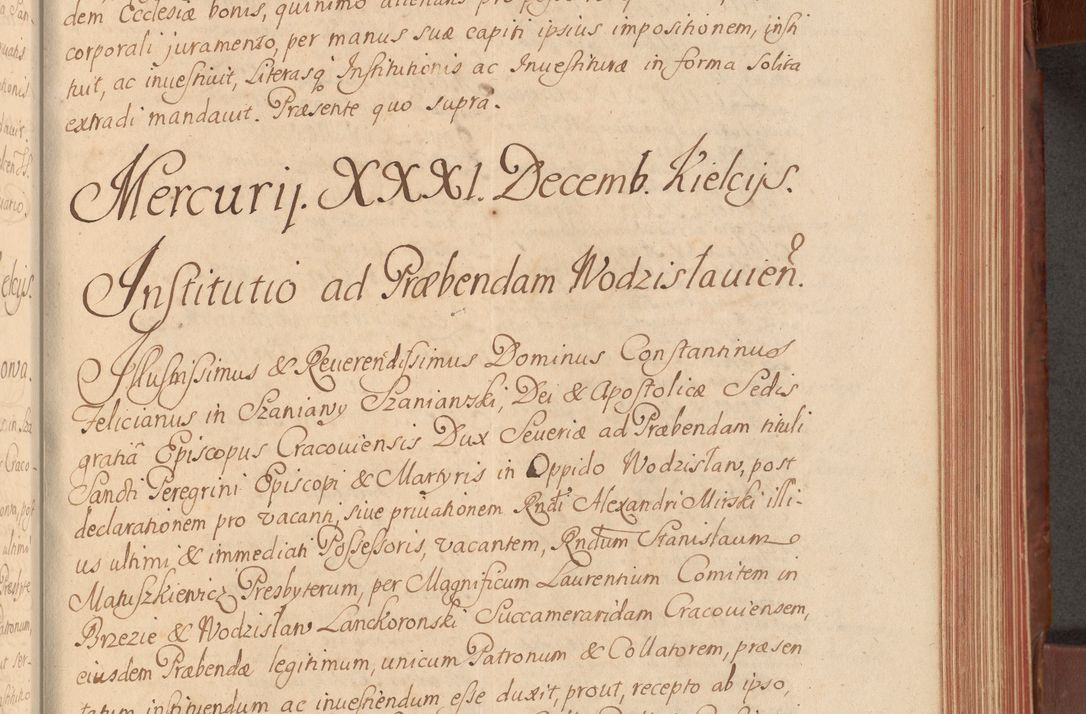 dem Ecclesiæ bonis, quinimo alienans
corporali juramento, per manus suæ capiti ipsius impositionem, insti
tuit, ac inuestiuit, Literasq̃ Institutionis ac Inuestituræ in forma solita
extradi mandauit. Præsente quo supra.
Mercurij. XXXI. Decemb. Kielcijs.
Institutio ad Præbendam Wodzisłauień.
Illustrissimus & Reuerendissimus Dominus Constantinus
Felicianus in Szaniawy Szaniawski, Dei & Apostolicæ Sedis
gratiâ Episcopus Cracouiensis Dux Seueriæ ad Præbendam tituli
Sancti Peregrini Episcopi & Martyris in Oppido Wodzisław, post
declarationem pro vacanti, siue priuationem Rndi Alexandri Mirski illi-
us ultimi, & immediati Possessoris, vacantem, Rndum Stanislaum
Matuszkiewicz Presbyterum, per Magnificum Laurentium Comitem in
Brzezie & Wodzisław Lanckoronski Succameraridam Cracouiensem,
eiusdem Præbendæ legitimum, unicum Patronum & Collatorem, præsen
tatum instituendum ac inuestiendum esse duxit, prout, recepto ab ipso,